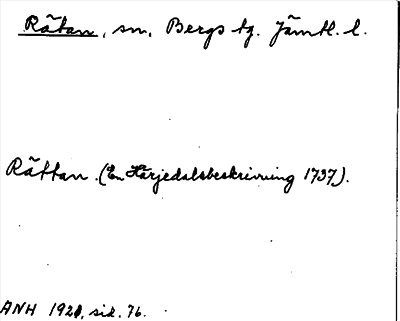 Rätan, sn, Bergs tg. Jämtl. l.
Rättan. (En Härjedalsbeskrivning 1737).
ANH 1920, sid. 76.